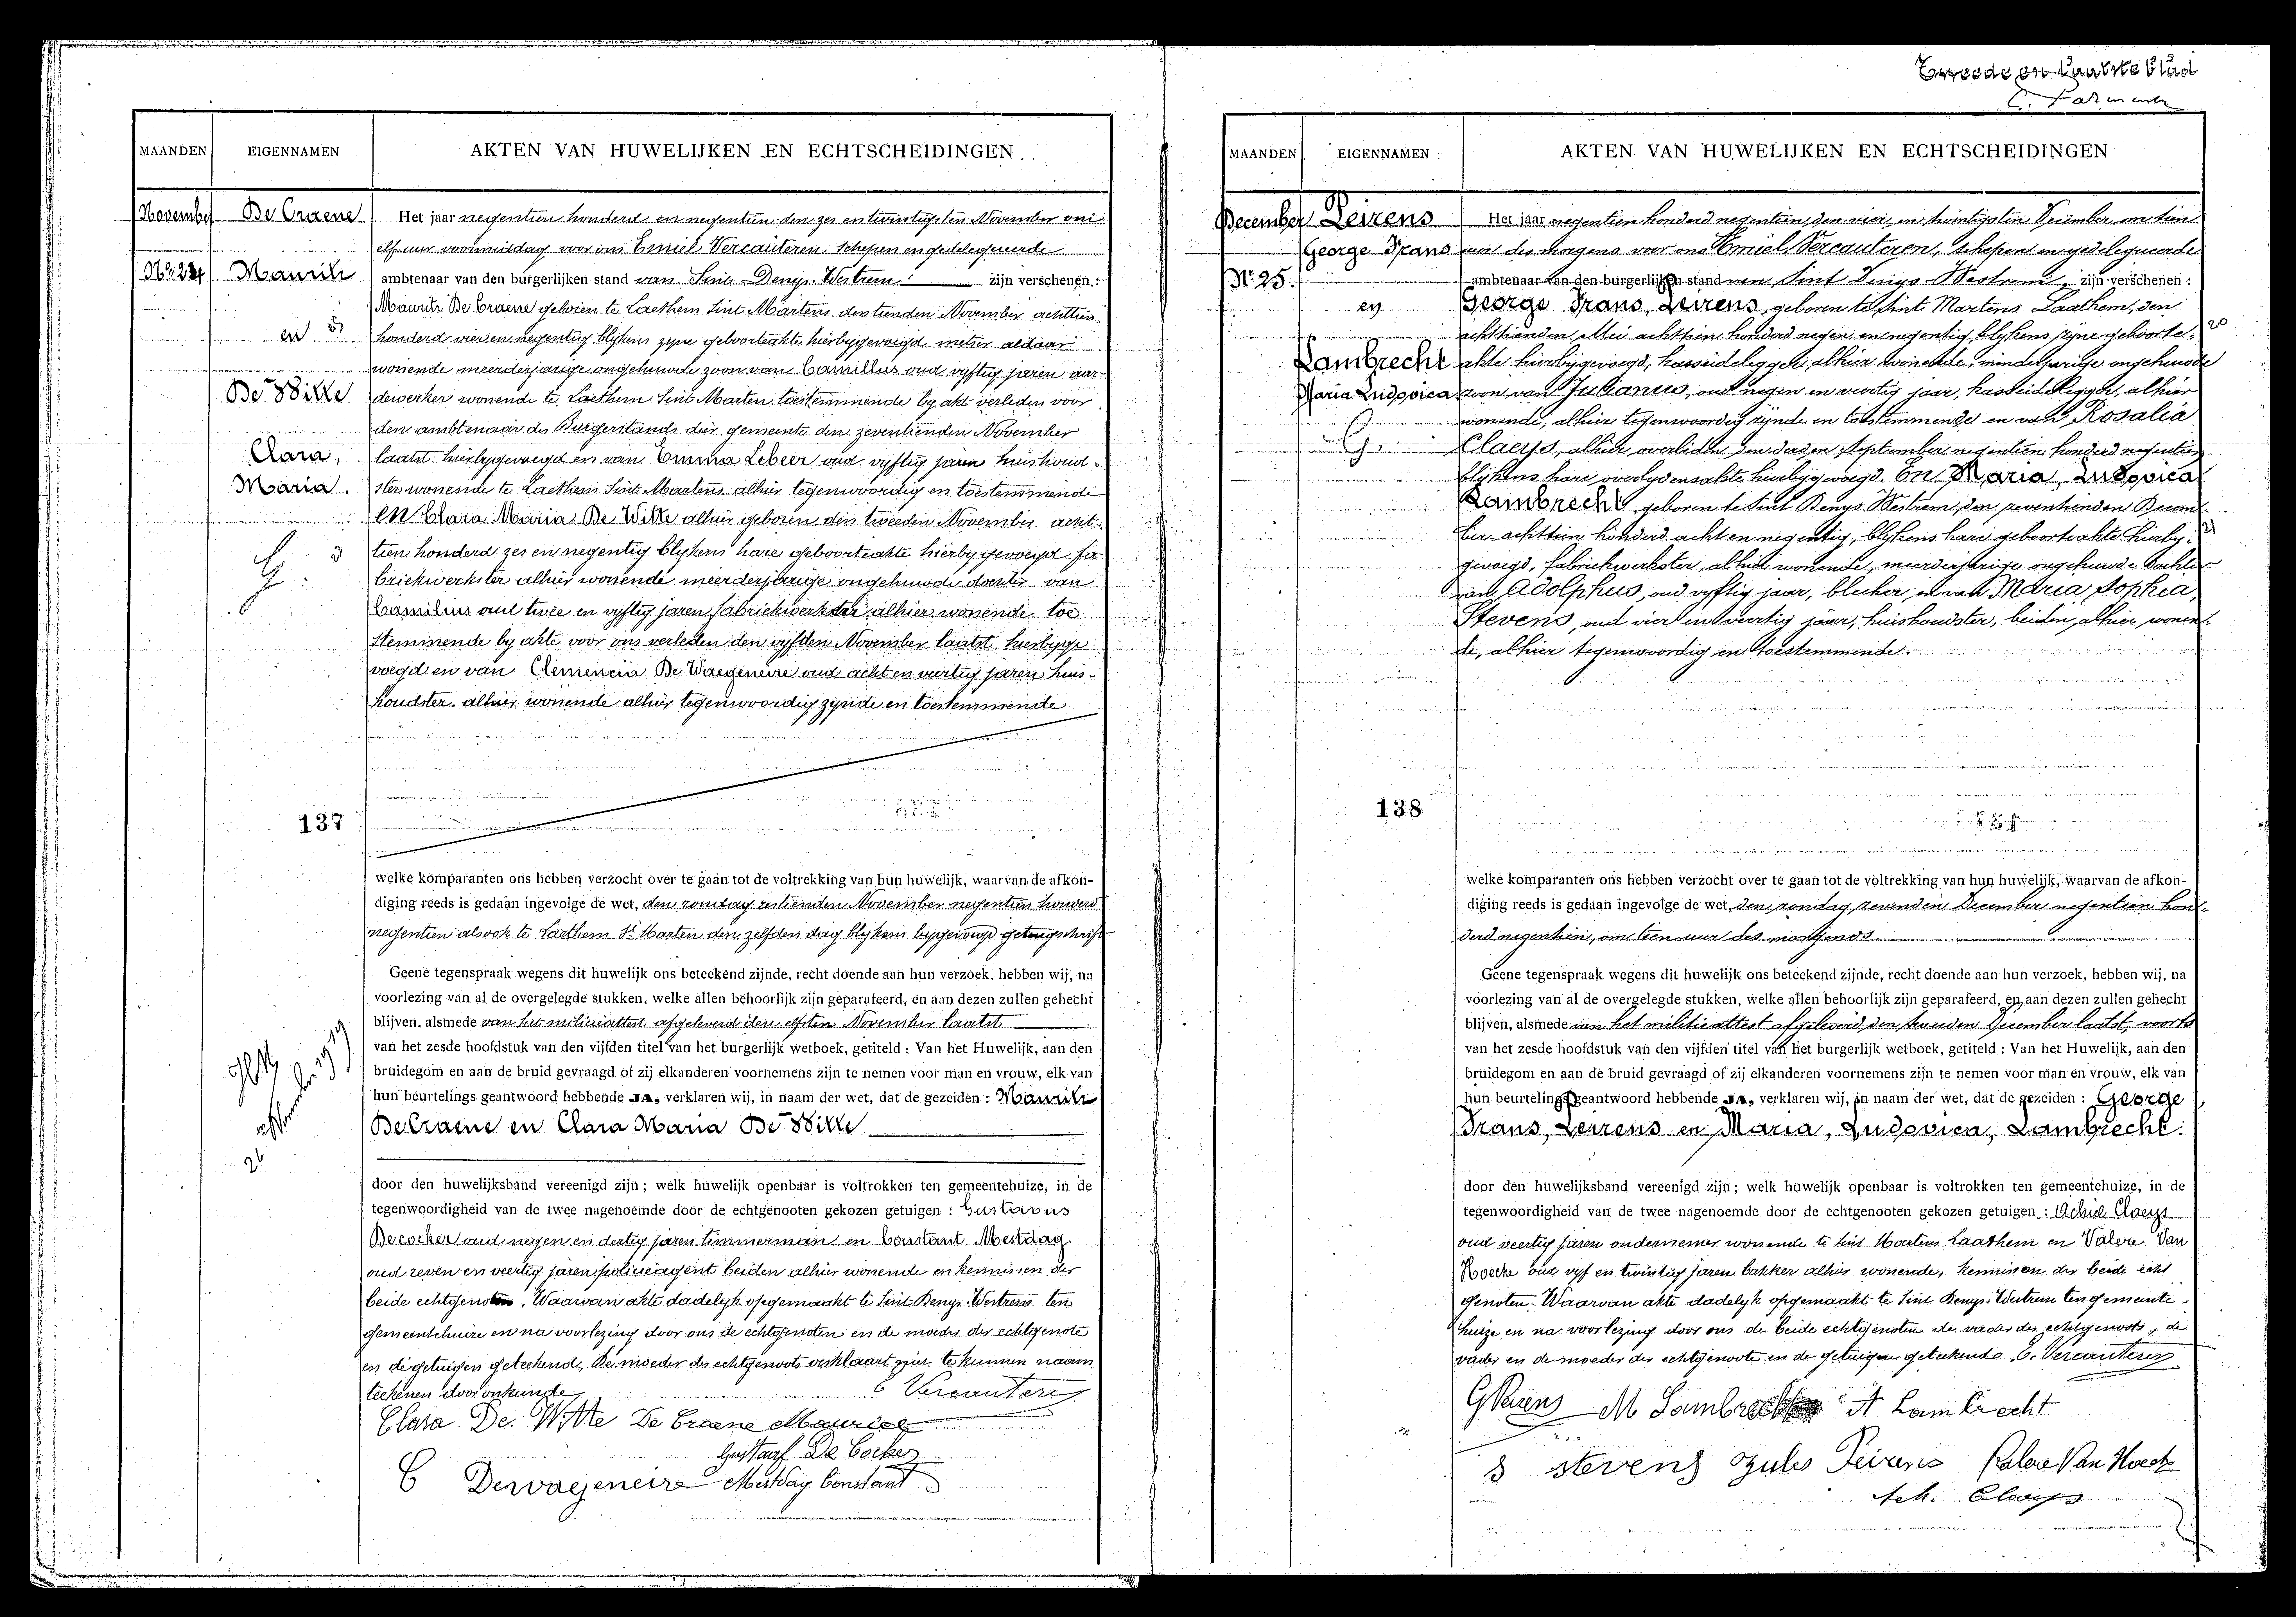 MAANDEN
EIGENNAMEN
AKTEN VAN HUWELIJKEN EN ECHTSCHEIDINGEN
November
De Craene
Nr. 24
Maurits
en
De Witte
Clara,
Maria.
G.
137
Het jaar negentien honderd en negentien den zes en twintigsten November om
elf uur voormiddag voor ons Emiel Vercauteren, schepen en gedelegueerde
ambtenaar van den burgerlijken stand van Sint Denys Westrem zijn verschenen :
Maurits De Craene geboren te Laethem Sint Martens den tienden November achttien
honderd vier en negentig blykens zyne geboorteakte hierbygevoegd aldaar
wonende meerderjarige ongehuwde zoon van Camillus oud vyftig jaren aar-
dewerker wonende te Laethem Sint Marten toestemmende by akt verleden voor
den ambtenaar des Burgerstands dier gemeente den zeventienden November
laatst hierbygevoegd en van Emma Lebeer oud vyftig jaren huishoud-
ster wonende te Laethem Sint Martens alhier tegenwoordig en toestemmende
en Clara Maria De Witte alhier geboren den tweeden November acht-
tien honderd zes en negentig blykens hare geboorteakte hierby gevoegd fa-
briekwerkster alhier wonende meerderjarige ongehuwde dochter van
Camilius oud twee en vyftig jaren fabriekwerker alhier wonende toe
stemmende by akte voor ons verleden den vyfden November laatst hierbyge
voegd en van Clemencia De Waegeneire oud acht en veertig jaren huis-
houdster alhier wonende alhier tegenwoordig zynde en toestemmende
welke komparanten ons hebben verzocht over te gaan tot de voltrekking van hun huwelijk, waarvan de afkon-
diging reeds is gedaan ingevolge de wet, den zondag zestienden November negentien honderd
negentien alsook te Laethem St Marten den zelfden dag blykens bygevoegd getuigschrift
Geene tegenspraak wegens dit huwelijk ons beteekend zijnde, recht doende aan hun verzoek, hebben wij, na
voorlezing van al de overgelegde stukken, welke allen behoorlijk zijn geparafeerd, en aan dezen zullen gehecht
blijven, alsmede van het militieattest afgeleverd den elfsten November laatst
van het zesde hoofdstuk van den vijfden titel van het burgerlijk wetboek, getiteld : Van het Huwelijk, aan den
bruidegom en aan de bruid gevraagd of zij elkanderen voornemens zijn te nemen voor man en vrouw, elk van
hun beurtelings geantwoord hebbende JA, verklaren wij, in naam der wet, dat de gezeiden : Maurits
De Craene en Clara Maria De Witte
door den huwelijksband vereenigd zijn ; welk huwelijk openbaar is voltrokken ten gemeentehuize, in de
tegenwoordigheid van de twee nagenoemde door de echtgenooten gekozen getuigen : Gustavus
Decocker oud negen en dertig jaren timmerman en Constant Mestdag
oud zeven en veertig jaren policieagent beiden alhier wonende en kennissen der
beide echtgenoten. Waarvan akte dadelyk opgemaakt te Sint Denys Westrem ten
gemeentehuize en na voorlezing door ons de echtgenoten en de moeder der echtgenote
en de getuigen geteekend, De moeder des echtgenoots verklaart niet te kunnen naam
teekenen door onkunde
E Vercauteren
Clara De Witte De Craene Maurice
Gustaaf De Cocker
C Dewaegeneire Mestdag Constant
Tweede en laatste blad
MAANDEN
EIGENNAMEN
AKTEN VAN HUWELIJKEN EN ECHTSCHEIDINGEN
December
Leirens
George Frans
Nr. 25.
en
Lambrecht
Maria Ludovica
G.
138
Het jaar negentien honderd negentien, den vier en twintigsten December om tien
uur des morgens voor ons Emiel Vercauteren, schepen en gedelegueerde
ambtenaar van den burgerlijken stand van Sint Denys Westrem, zijn verschenen :
George Frans, Leirens, geboren te Sint Martens Laathem, den
achttienden Mei achttien honderd negen en negentig, blykens zyne geboorte-
akte hierbygevoegd, kasseidelegger, alhier wonende, minderjarige ongehuwde
zoon van Julianus, oud negen en veertig jaar, kasseidelegger, alhier
wonende, alhier tegenwoordig zynde en toestemmende en van Rosalia
Claeys, alhier overleden den derden September negentien honderd negentien
blykens hare overlydensakte hierbygevoegd. En Maria, Ludovica
Lambrecht, geboren te Sint Denys Westrem, den zeventienden Decem-
ber achttien honderd acht en negentig, blykens hare geboorteakte hierby-
gevoegd, fabriekwerkster, alhier wonende, meerderjarige ongehuwde dochter
van Adolphus, oud vyftig jaar, bleeker, en van Maria Sophia,
Stevens, oud vier en veertig jaar, huishoudster, beiden alhier wonen-
de, alhier tegenwoordig en toestemmende.
welke komparanten ons hebben verzocht over te gaan tot de voltrekking van hun huwelijk, waarvan de afkon-
diging reeds is gedaan ingevolge de wet, den zondag zevenden December negentien hon-
derd negentien, om tien uur des morgends
Geene tegenspraak wegens dit huwelijk ons beteekend zijnde, recht doende aan hun verzoek, hebben wij, na
voorlezing van al de overgelegde stukken, welke allen behoorlijk zijn geparafeerd, en aan dezen zullen gehecht
blijven, alsmede van het militieattest afgeleverd den December laatst, voorts
van het zesde hoofdstuk van den vijfden titel van het burgerlijk wetboek, getiteld : Van het Huwelijk, aan den
bruidegom en aan de bruid gevraagd of zij elkanderen voornemens zijn te nemen voor man en vrouw, elk van
hun beurtelings geantwoord hebbende JA, verklaren wij, in naam der wet, dat de gezeiden : George
Frans, Leirens en Maria, Ludovica, Lambrecht.
door den huwelijksband vereenigd zijn ; welk huwelijk openbaar is voltrokken ten gemeentehuize, in de
tegenwoordigheid van de twee nagenoemde door de echtgenooten gekozen getuigen : Achiel Claeys
oud veertig jaren ondernemer wonende te Sint Martens Laathem en Valere Van
Hoecke oud vyf en twintig jaren bakker alhier wonende, kennissen der beide echt
genoten. Waarvan akte dadelyk opgemaakt te Sint Denys Westrem ten gemeente
huize en na voorlezing door ons de beide echtgenoten de vader des echtgenoots, de
vader en de moeder der echtgenoote en de getuigen geteekend. E. Vercauteren
G Leirens M Lambrecht A Lambrecht
S Stevens Jules Leirens Valere Van Hoecke
Ach. Claeys